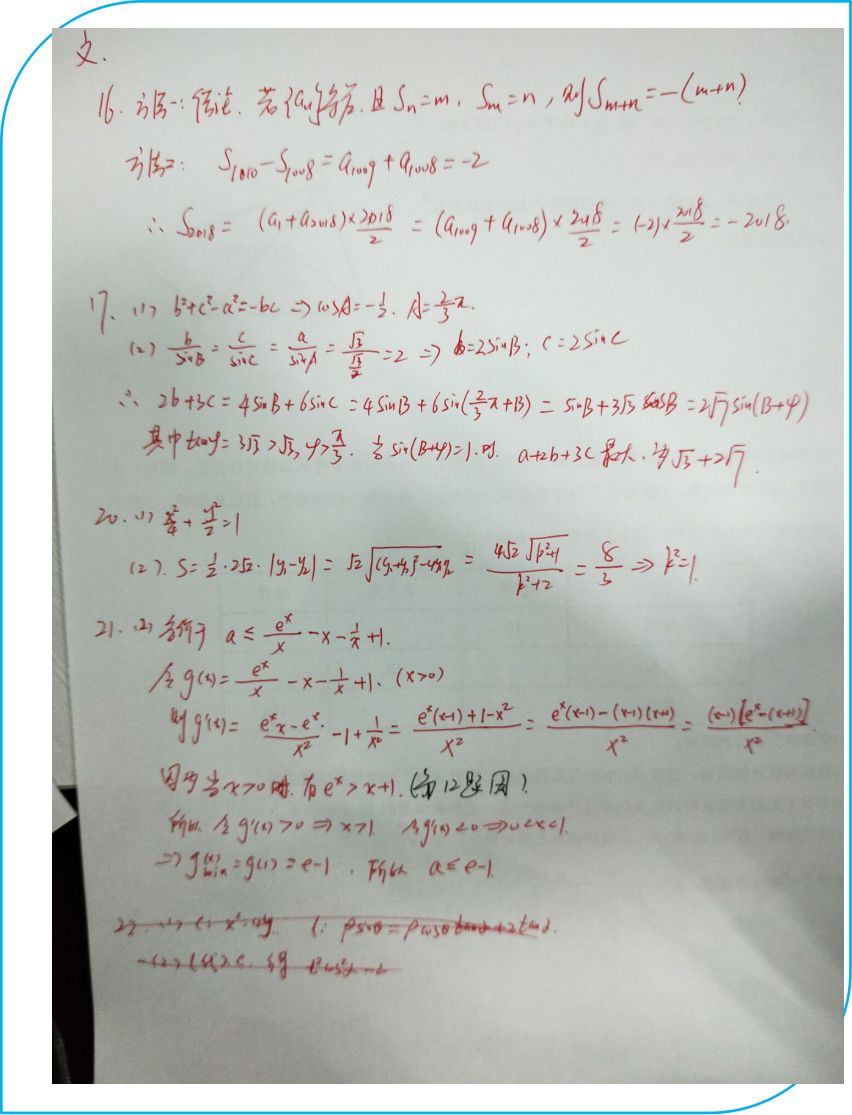 文.
16. 方法一: 结论. 若{aₙ}等差. 且 Sₙ=m, Sₘ=n, 则 Sₘ₊ₙ=-(m+n)
方法二: S₁₀₁₀-S₁₀₀₈=a₁₀₀₉+a₁₀₀₈=-2
∴ S₂₀₁₈= (a₁+a₂₀₁₈)×2018/2 = (a₁₀₀₉+a₁₀₀₈)×2018/2 = (-2)×2018/2 = -2018.
17. (1) b²+c²-a²=-bc ⇒ cosA=-1/2. A=2/3π.
(2) b/sinB = c/sinC = a/sinA = √3/(√3/2) =2 ⇒ b=2sinB; c=2sinC
∴ 2b+3c=4sinB+6sinC=4sinB+6sin(2/3π+B)= sinB+3√3 cosB=2√7sin(B+φ)
其中tanφ=3√3>√3, φ>π/3. 当sin(B+φ)=1时. a+2b+3c最大. 为√3+2√7.
20. (1) x²/4+y²/2=1
(2). S=1/2·2√2·|y₁-y₂|=√2√((y₁+y₂)²-4y₁y₂) = 4√2√(k²+1)/(k²+2) = 8/3 ⇒ k²=1.
21. (2) 等价于 a≤e^x/x-x-1/x+1.
令g(x)=e^x/x-x-1/x+1. (x>0)
则g'(x)=(e^x x-e^x)/x²-1+1/x²=(e^x(x-1)+1-x²)/x²=(e^x(x-1)-(x-1)(x+1))/x²=(x-1)[e^x-(x+1)]/x²
因为当x>0时.有e^x>x+1. (第12题图)
所以 令g'(x)>0⇒x>1. 令g'(x)<0⇒0<x<1.
⇒g(x)min=g(1)=e-1, 所以 a≤e-1.
22. (1) C: x²=4y. l: ρsinθ=ρcosθtanα+2tanα.